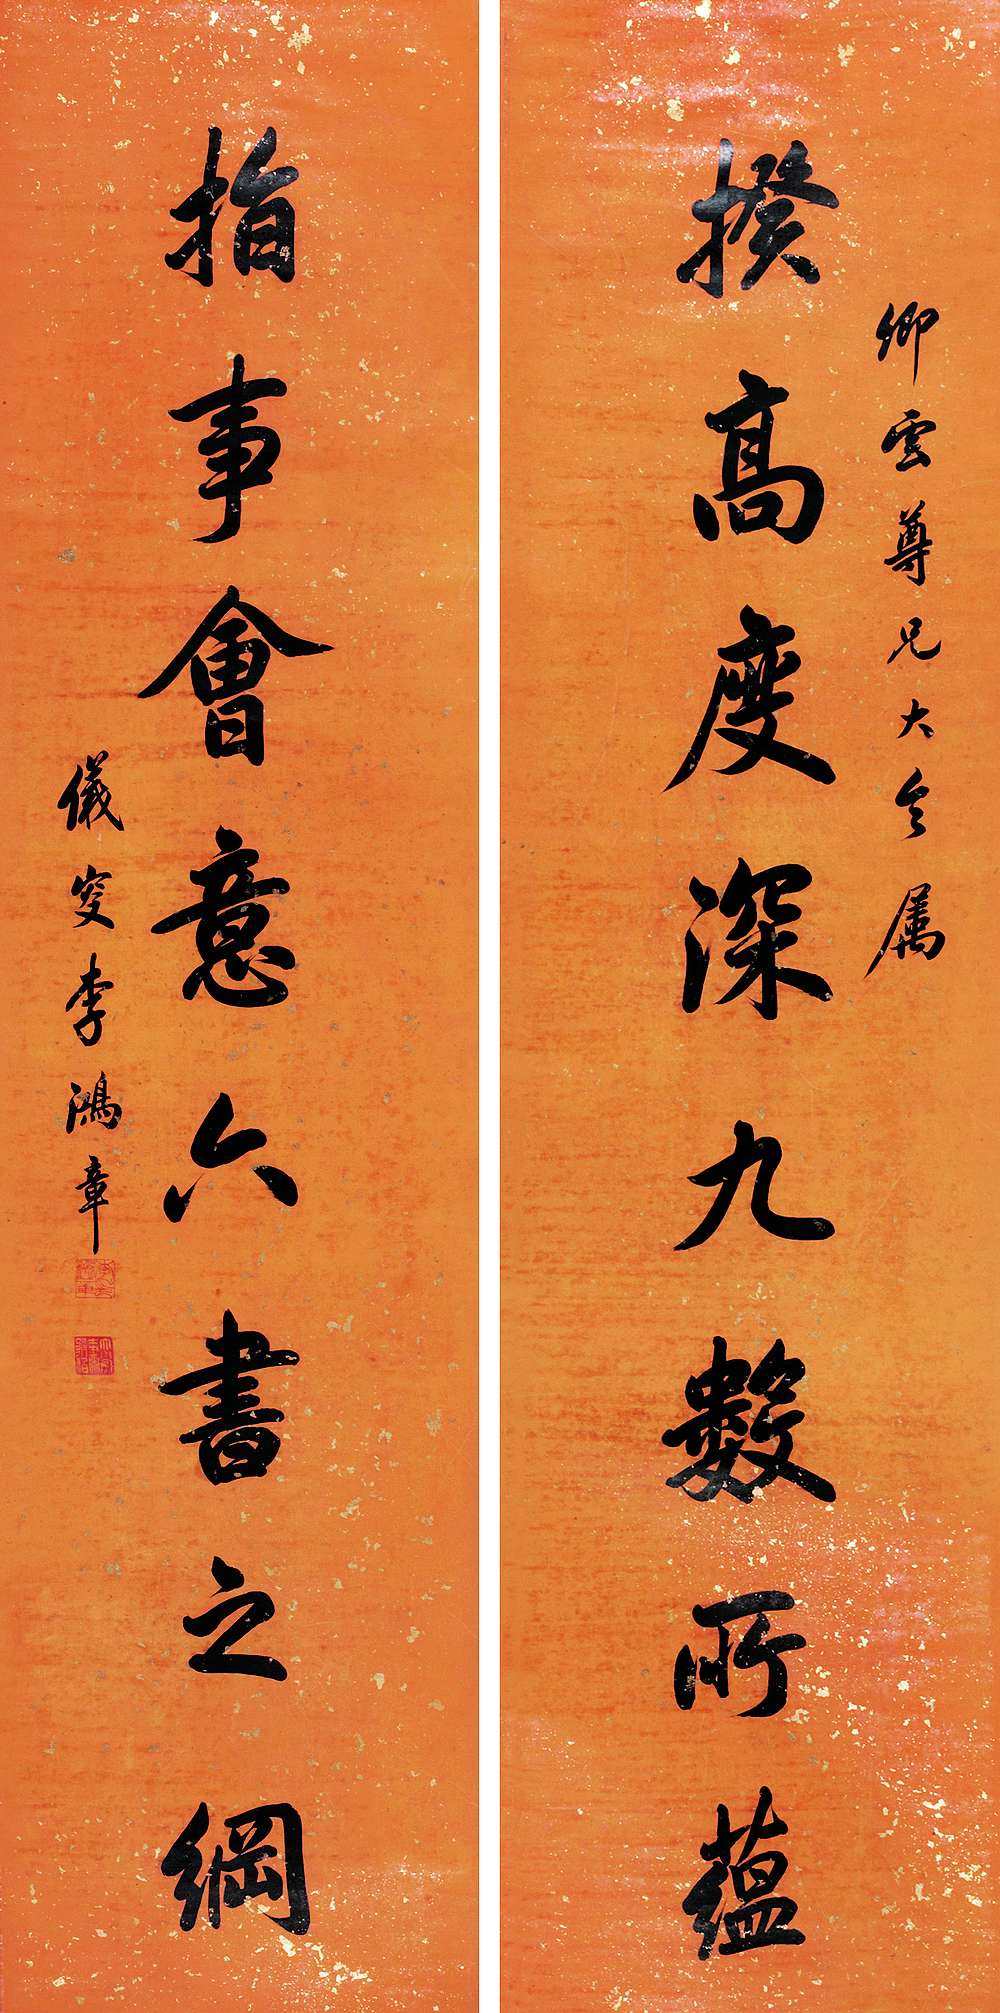 卿雲尊兄大令屬
揆高度深九數所蘊
指事會意六書之綱
儀叟李鴻章